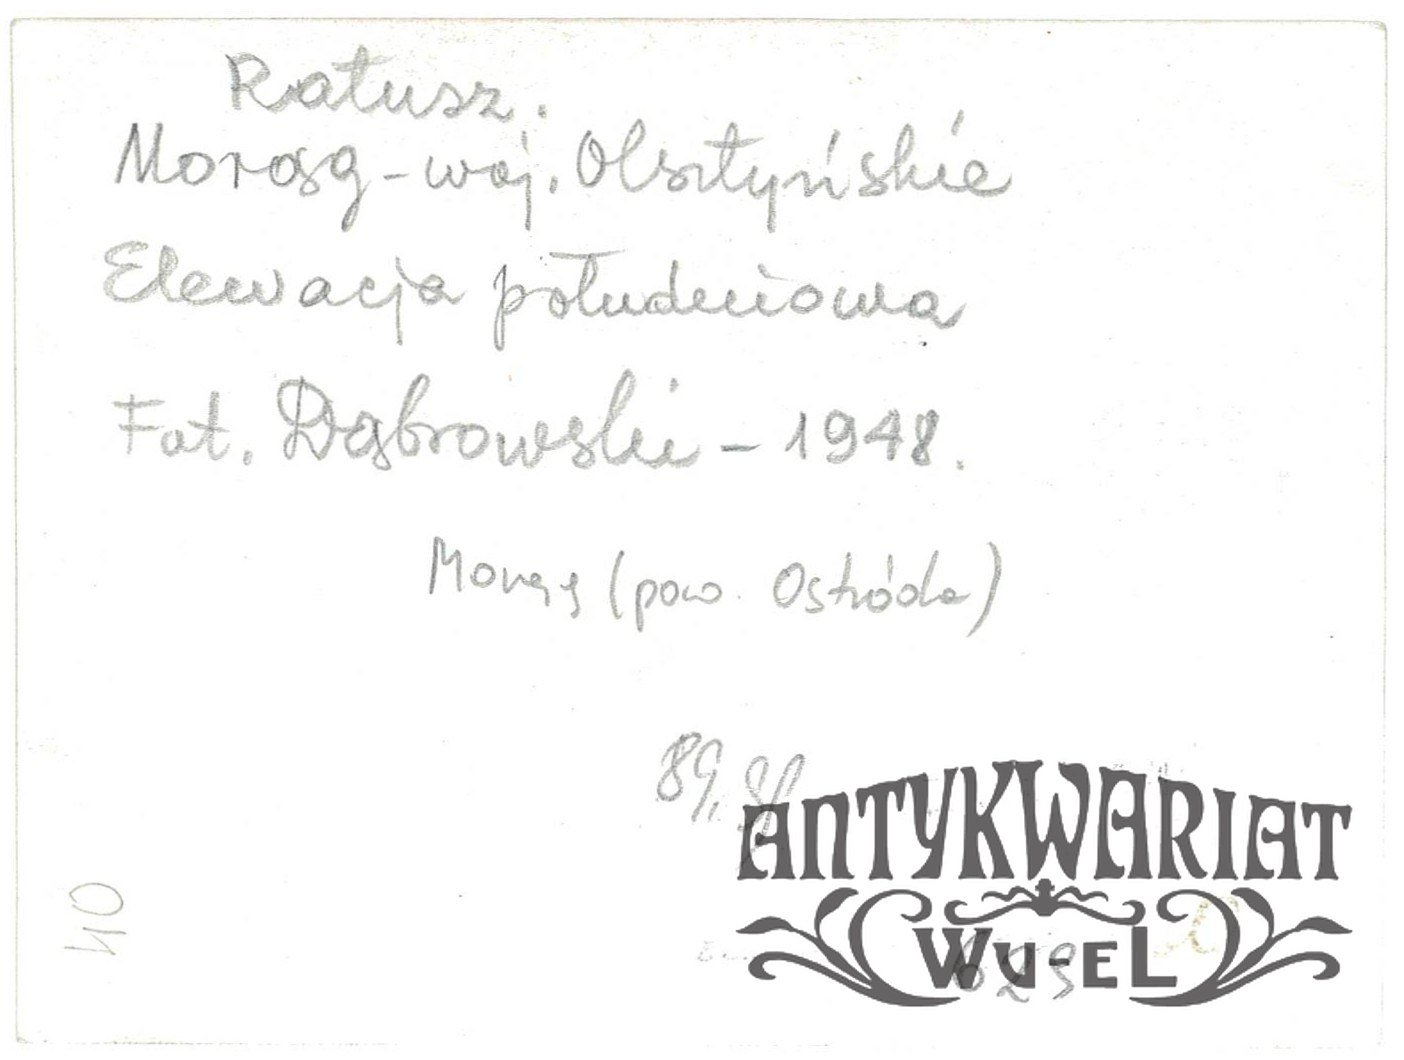 Ratusz.
Morąg - woj. Olsztyńskie
Elewacja południowa
Fot. Dąbrowski - 1948.
Morąg (pow. Ostróda)
89,
ANTYKWARIAT
WU-EL
629
40